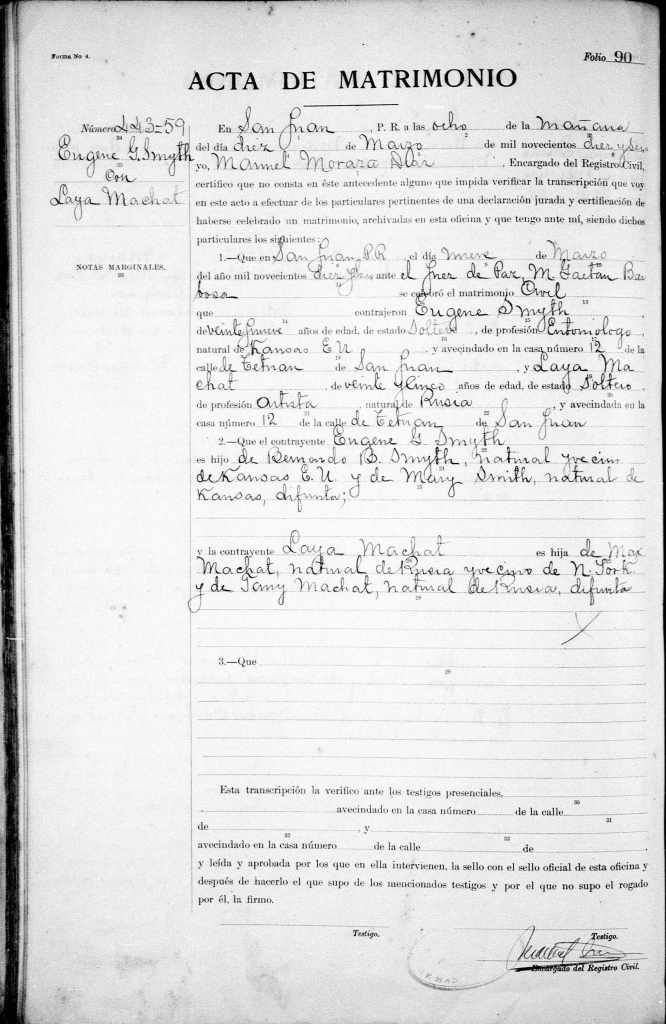 Forma No 4.
Folio 90
ACTA DE MATRIMONIO
Número 443-59
Eugene G. Smyth
Con
Laya Machat
NOTAS MARGINALES.
En San Juan, P. R. a las ocho de la mañana
del día diez de Marzo de mil novecientos diez y sei
vo, Manuel Moraza Diaz, Encargado del Registro Civil,
certifico que no consta en éste antecedente alguno que impida verificar la transcripción que voy
en este acto a efectuar de los particulares pertinentes de una declaración jurada y certificación de
haberse celebrado un matrimonio, archivadas en esta oficina y que tengo ante mí, siendo dichos
particulares los siguientes:
1.—Que en San Juan, P.R. el día nueve de Marzo
del año mil novecientos diez y ante el Juez de Paz, M. Gaetan Bar
bosa se celebró el matrimonio Civil
que contrajeron Eugene Smyth
de veinte y nueve años de edad, de estado Soltero, de profesión Entomologo,
natural de Kansas E. U. y avecindado en la casa número 12 de la
calle de Tetuan de San Juan, y Laya Ma
chat de veinte y cinco años de edad, de estado Soltero,
de profesión Artista, natural de Rusia, y avecindada en la
casa número 12 de la calle de Tetuan de San Juan
2.—Que el contrayente Eugene G. Smyth
es hijo de Bernardo B. Smyth, natural y vecino
de Kansas E. U. y de Mary Smith, natural de
Kansas, difunta;
y la contrayente Laya Machat es hija de Max
Machat, natural de Rusia y vecino de N. York
y de Machat, natural de Rusia, difunta
3.—Que
Esta transcripción la verifico ante los testigos presenciales,
avecindado en la casa número de la calle
de , y
avecindado en la casa número de la calle de
y leída y aprobada por los que en ella intervienen, la sello con el sello oficial de esta oficina y
después de hacerlo el que supo de los mencionados testigos y por el que no supo el rogado
por él, la firmo.
Testigo.
Testigo.
Encargado del Registro Civil.